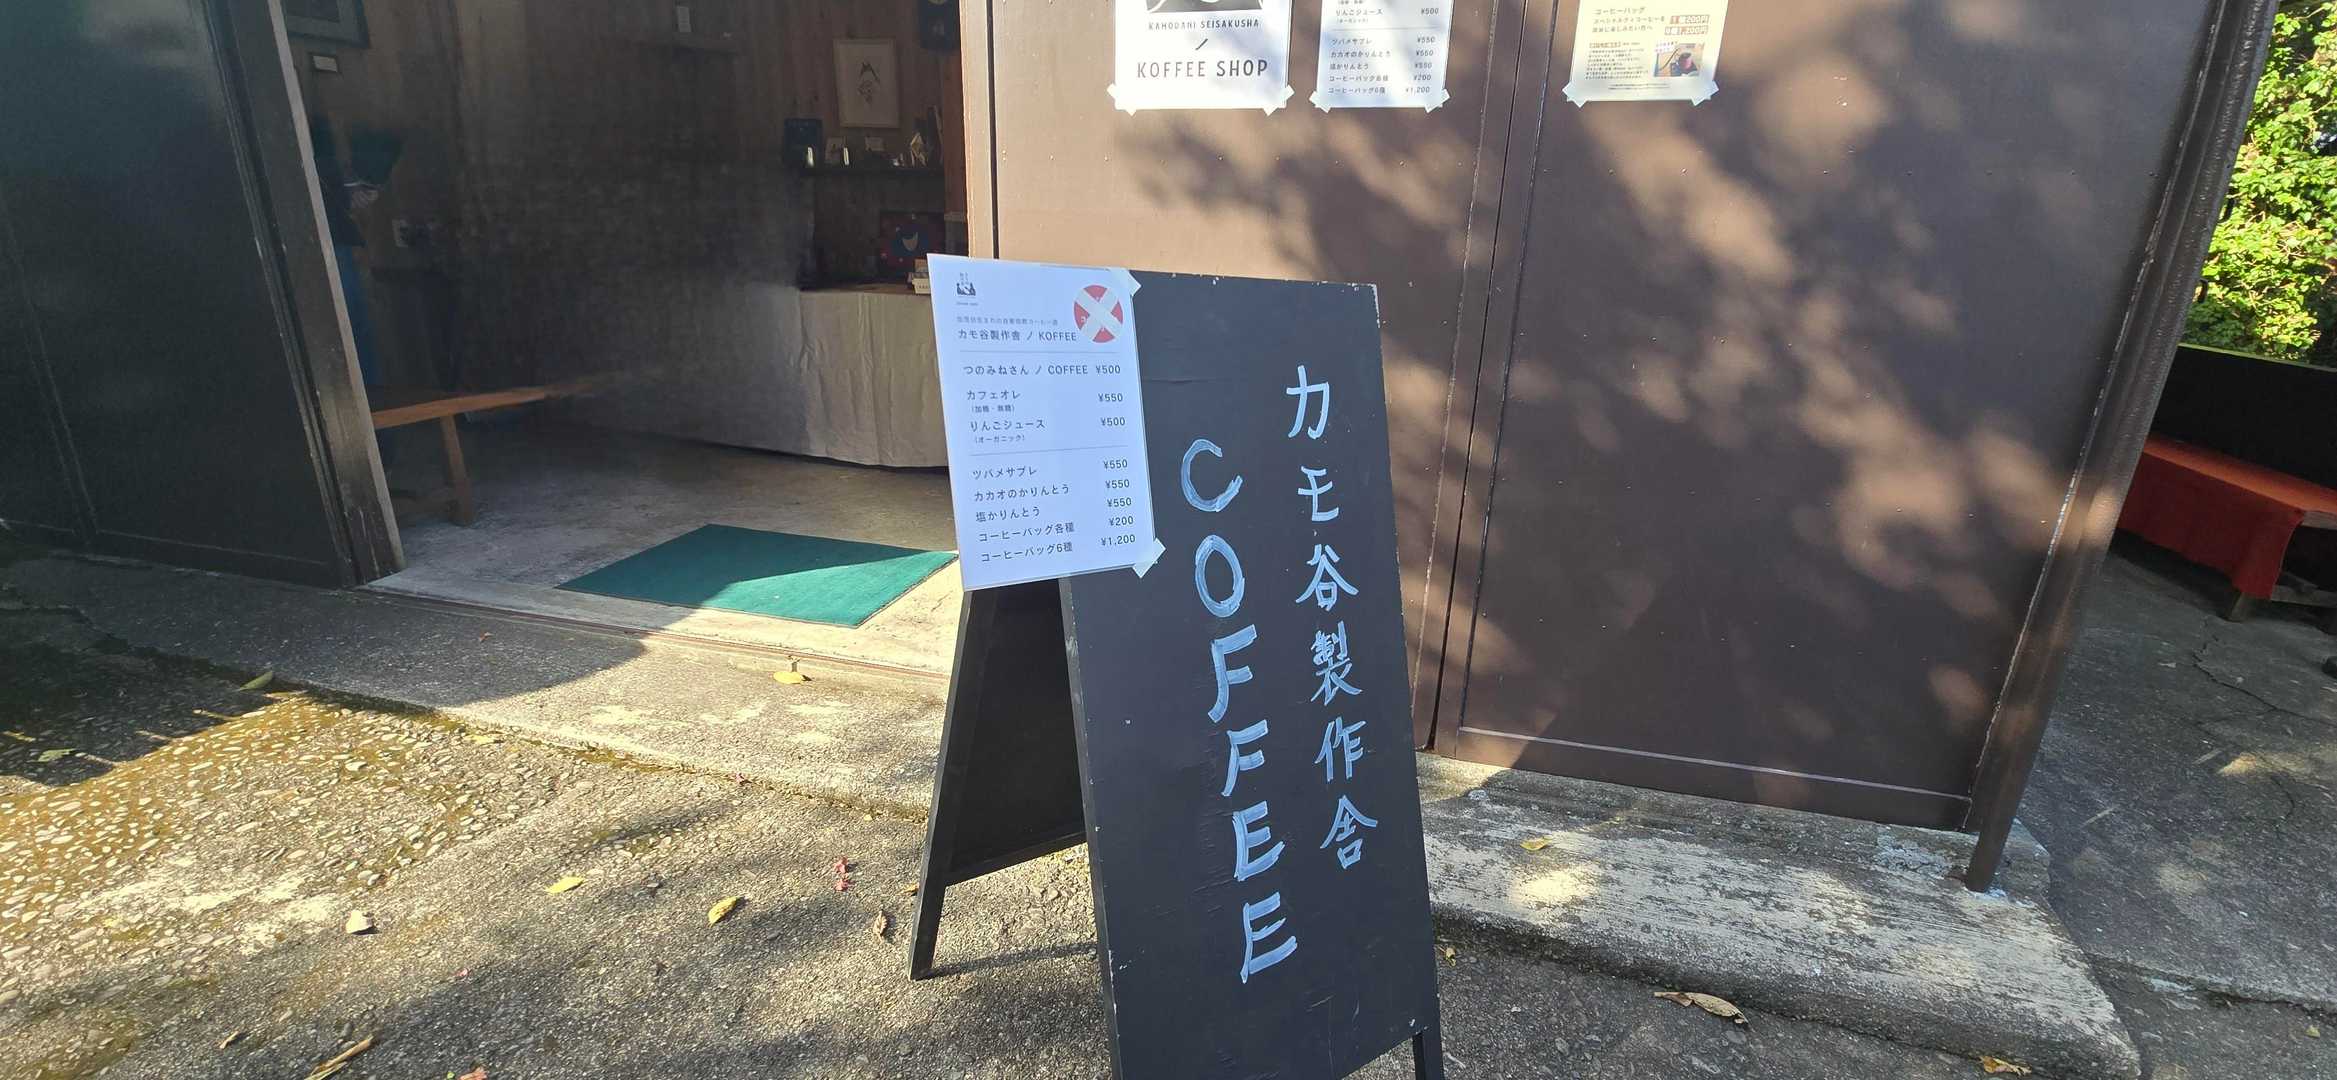 KAMODANI SEISAKUSHA
ノ
KOFFEE SHOP
りんごジュース ¥500
(オーガニック)
ツバメサブレ ¥550
カカオのかりんとう ¥550
塩かりんとう ¥550
コーヒーバッグ各種 ¥200
コーヒーバッグ6種 ¥1,200
コーヒーバッグ
スペシャルティコーヒーを
1個200円
6個1,200円
カモ谷製作舎 ノ KOFFEE
つのみねさん ノ COFFEE ¥500
カフェオレ ¥550
(加糖・無糖)
りんごジュース ¥500
(オーガニック)
ツバメサブレ ¥550
カカオのかりんとう ¥550
塩かりんとう ¥550
コーヒーバッグ各種 ¥200
コーヒーバッグ6種 ¥1,200
カモ谷製作舎
COFFEE